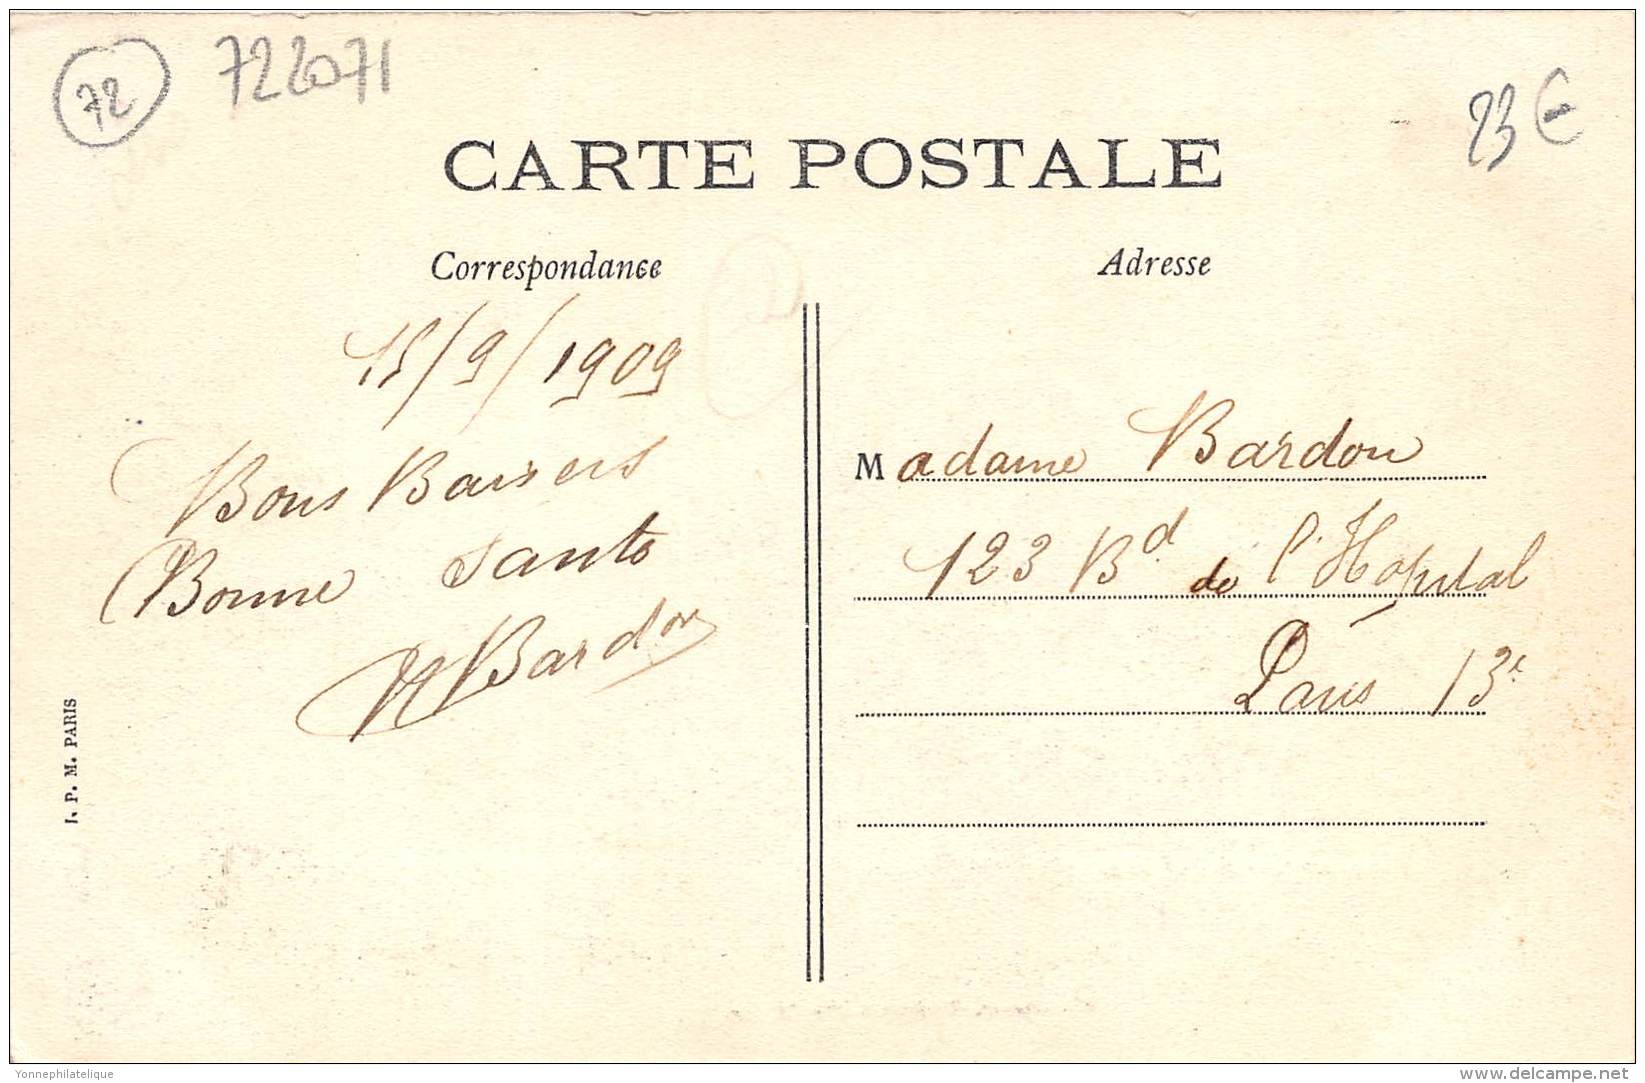 72
722071
23€
CARTE POSTALE
Correspondance
Adresse
15/9/1909
Bons Baisers
Bonne Santé
Bardon
Madame Bardon
123 Bd de l'Hôpital
Paris 13e
J. P. M. PARIS
Yonnephilatelique
delcampe.net